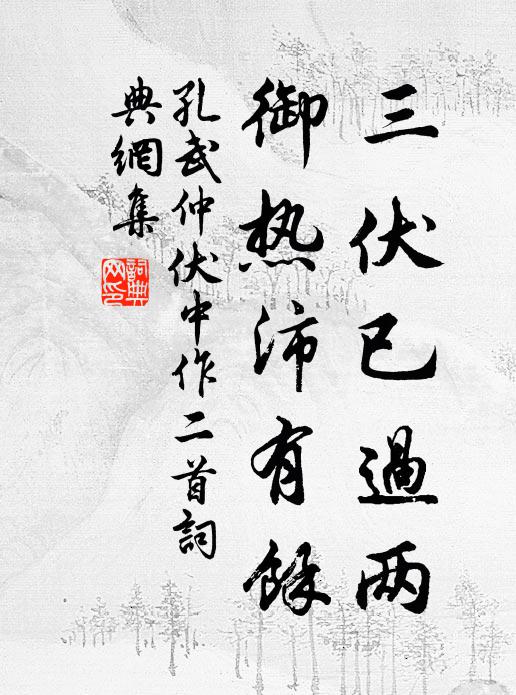 三伏已過两
御热沛有餘
孔武仲伏中作二首詞
典網集
詞典网印